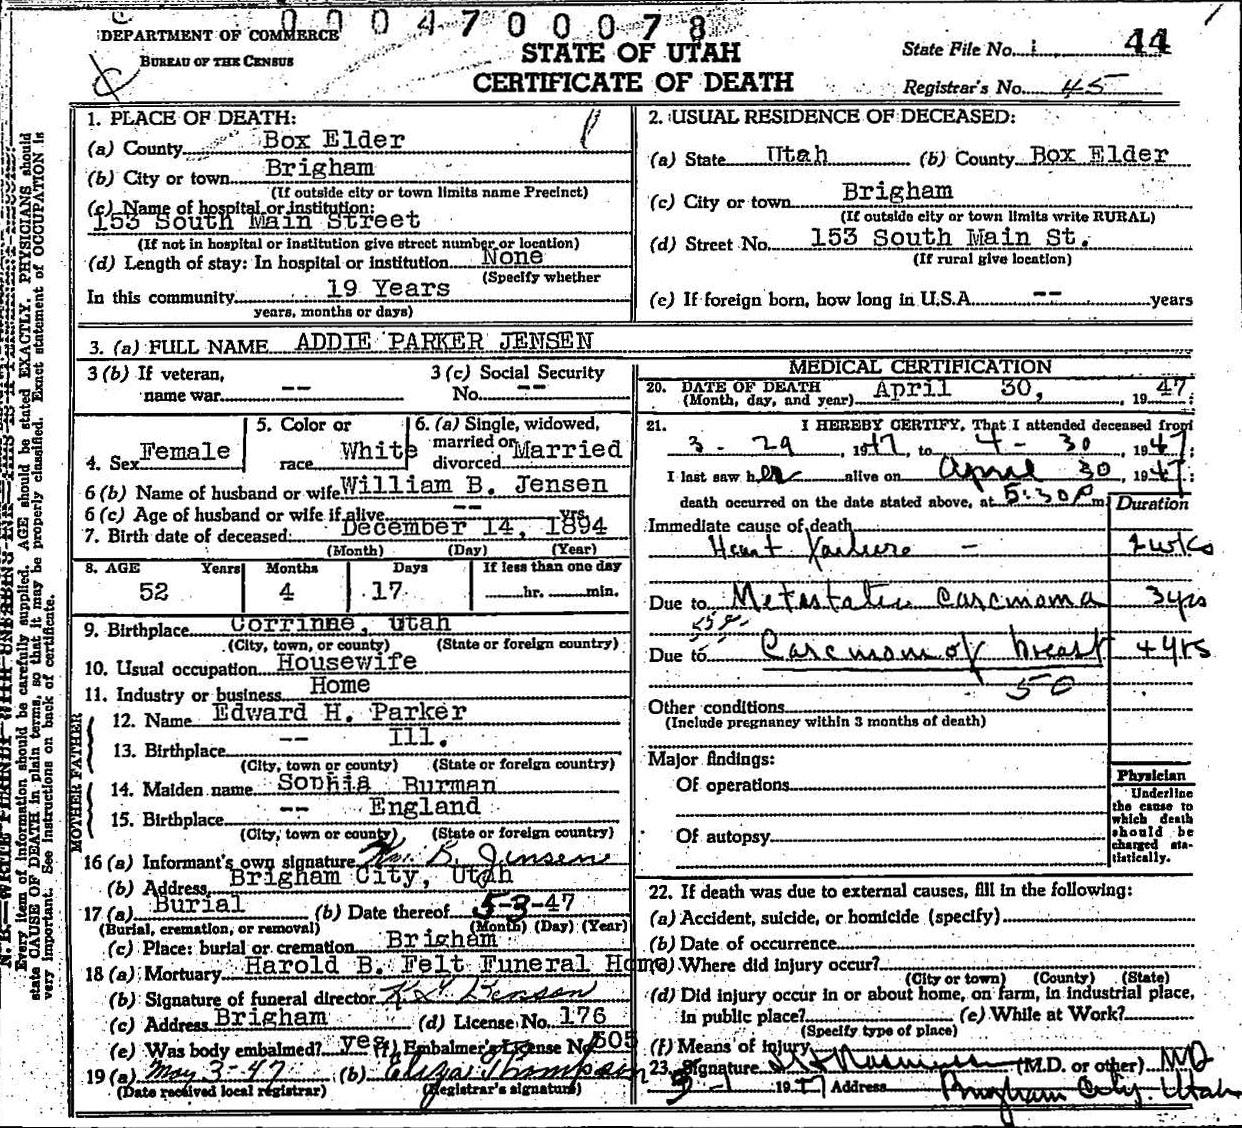 000470 0078
DEPARTMENT OF COMMERCE
BUREAU OF THE CENSUS
STATE OF UTAH
CERTIFICATE OF DEATH
State File No. 44
Registrar's No. 45
1. PLACE OF DEATH:
(a) County Box Elder
(b) City or town Brigham
(If outside city or town limits name Precinct)
(c) Name of hospital or institution:
153 South Main Street
(If not in hospital or institution give street number or location)
(d) Length of stay: In hospital or institution None
(Specify whether
In this community 19 Years
years, months or days)
2. USUAL RESIDENCE OF DECEASED:
(a) State Utah (b) County Box Elder
(c) City or town Brigham
(If outside city or town limits write RURAL)
(d) Street No. 153 South Main St.
(If rural give location)
(e) If foreign born, how long in U.S.A. -- years
3. (a) FULL NAME ADDIE PARKER JENSEN
3 (b) If veteran,
name war --
3 (c) Social Security
No. --
4. Sex Female
5. Color or
race White
6. (a) Single, widowed,
married or
divorced Married
6 (b) Name of husband or wife William B. Jensen
6 (c) Age of husband or wife if alive -- yrs.
7. Birth date of deceased: December 14, 1894
(Month) (Day) (Year)
8. AGE Years Months Days If less than one day
52 4 17 hr. min.
9. Birthplace Corrinne, Utah
(City, town, or county) (State or foreign country)
10. Usual occupation Housewife
11. Industry or business Home
FATHER
12. Name Edward H. Parker
13. Birthplace -- Ill.
(City, town or county) (State or foreign country)
MOTHER
14. Maiden name Sophia Burman
15. Birthplace -- England
(City, town or county) (State or foreign country)
16 (a) Informant's own signature Wm. B. Jensen
(b) Address Brigham City, Utah
17 (a) Burial (b) Date thereof 5-3-47
(Burial, cremation, or removal) (Month) (Day) (Year)
(c) Place: burial or cremation Brigham
18 (a) Mortuary Harold B. Felt Funeral Home
(b) Signature of funeral director
(c) Address Brigham (d) License No. 176
(e) Was body embalmed? yes (f) Embalmer's License No. 505
19 (a) May 3-47 (b) Eliza Thompson
(Date received local registrar) (Registrar's signature)
MEDICAL CERTIFICATION
20. DATE OF DEATH
(Month, day, and year) April 30, 1947;
21. I HEREBY CERTIFY, That I attended deceased from
3 - 29, 1947, to 4 - 30 1947;
I last saw her alive on April 30, 1947;
death occurred on the date stated above, at 5:30P m
Duration
Immediate cause of death
Heart Failure - 2 wks
Due to Metastatic Carcinoma 3 yrs
Due to Carcinom of breast 4 yrs
50
Other conditions
(Include pregnancy within 3 months of death)
Major findings:
Of operations
Of autopsy
Physician
Underline
the cause to
which death
should be
charged sta-
tistically.
22. If death was due to external causes, fill in the following:
(a) Accident, suicide, or homicide (specify)
(b) Date of occurrence
(c) Where did injury occur?
(City or town) (County) (State)
(d) Did injury occur in or about home, on farm, in industrial place,
in public place? (e) While at Work?
(Specify type of place)
(f) Means of injury
23. Signature (M.D. or other) MD
1947 Address Brigham City, Utah
Every item of information should be carefully supplied. AGE should be stated EXACTLY. PHYSICIANS should
state CAUSE OF DEATH in plain terms, so that it may be properly classified. Exact statement of OCCUPATION is
very important. See instructions on back of certificate.